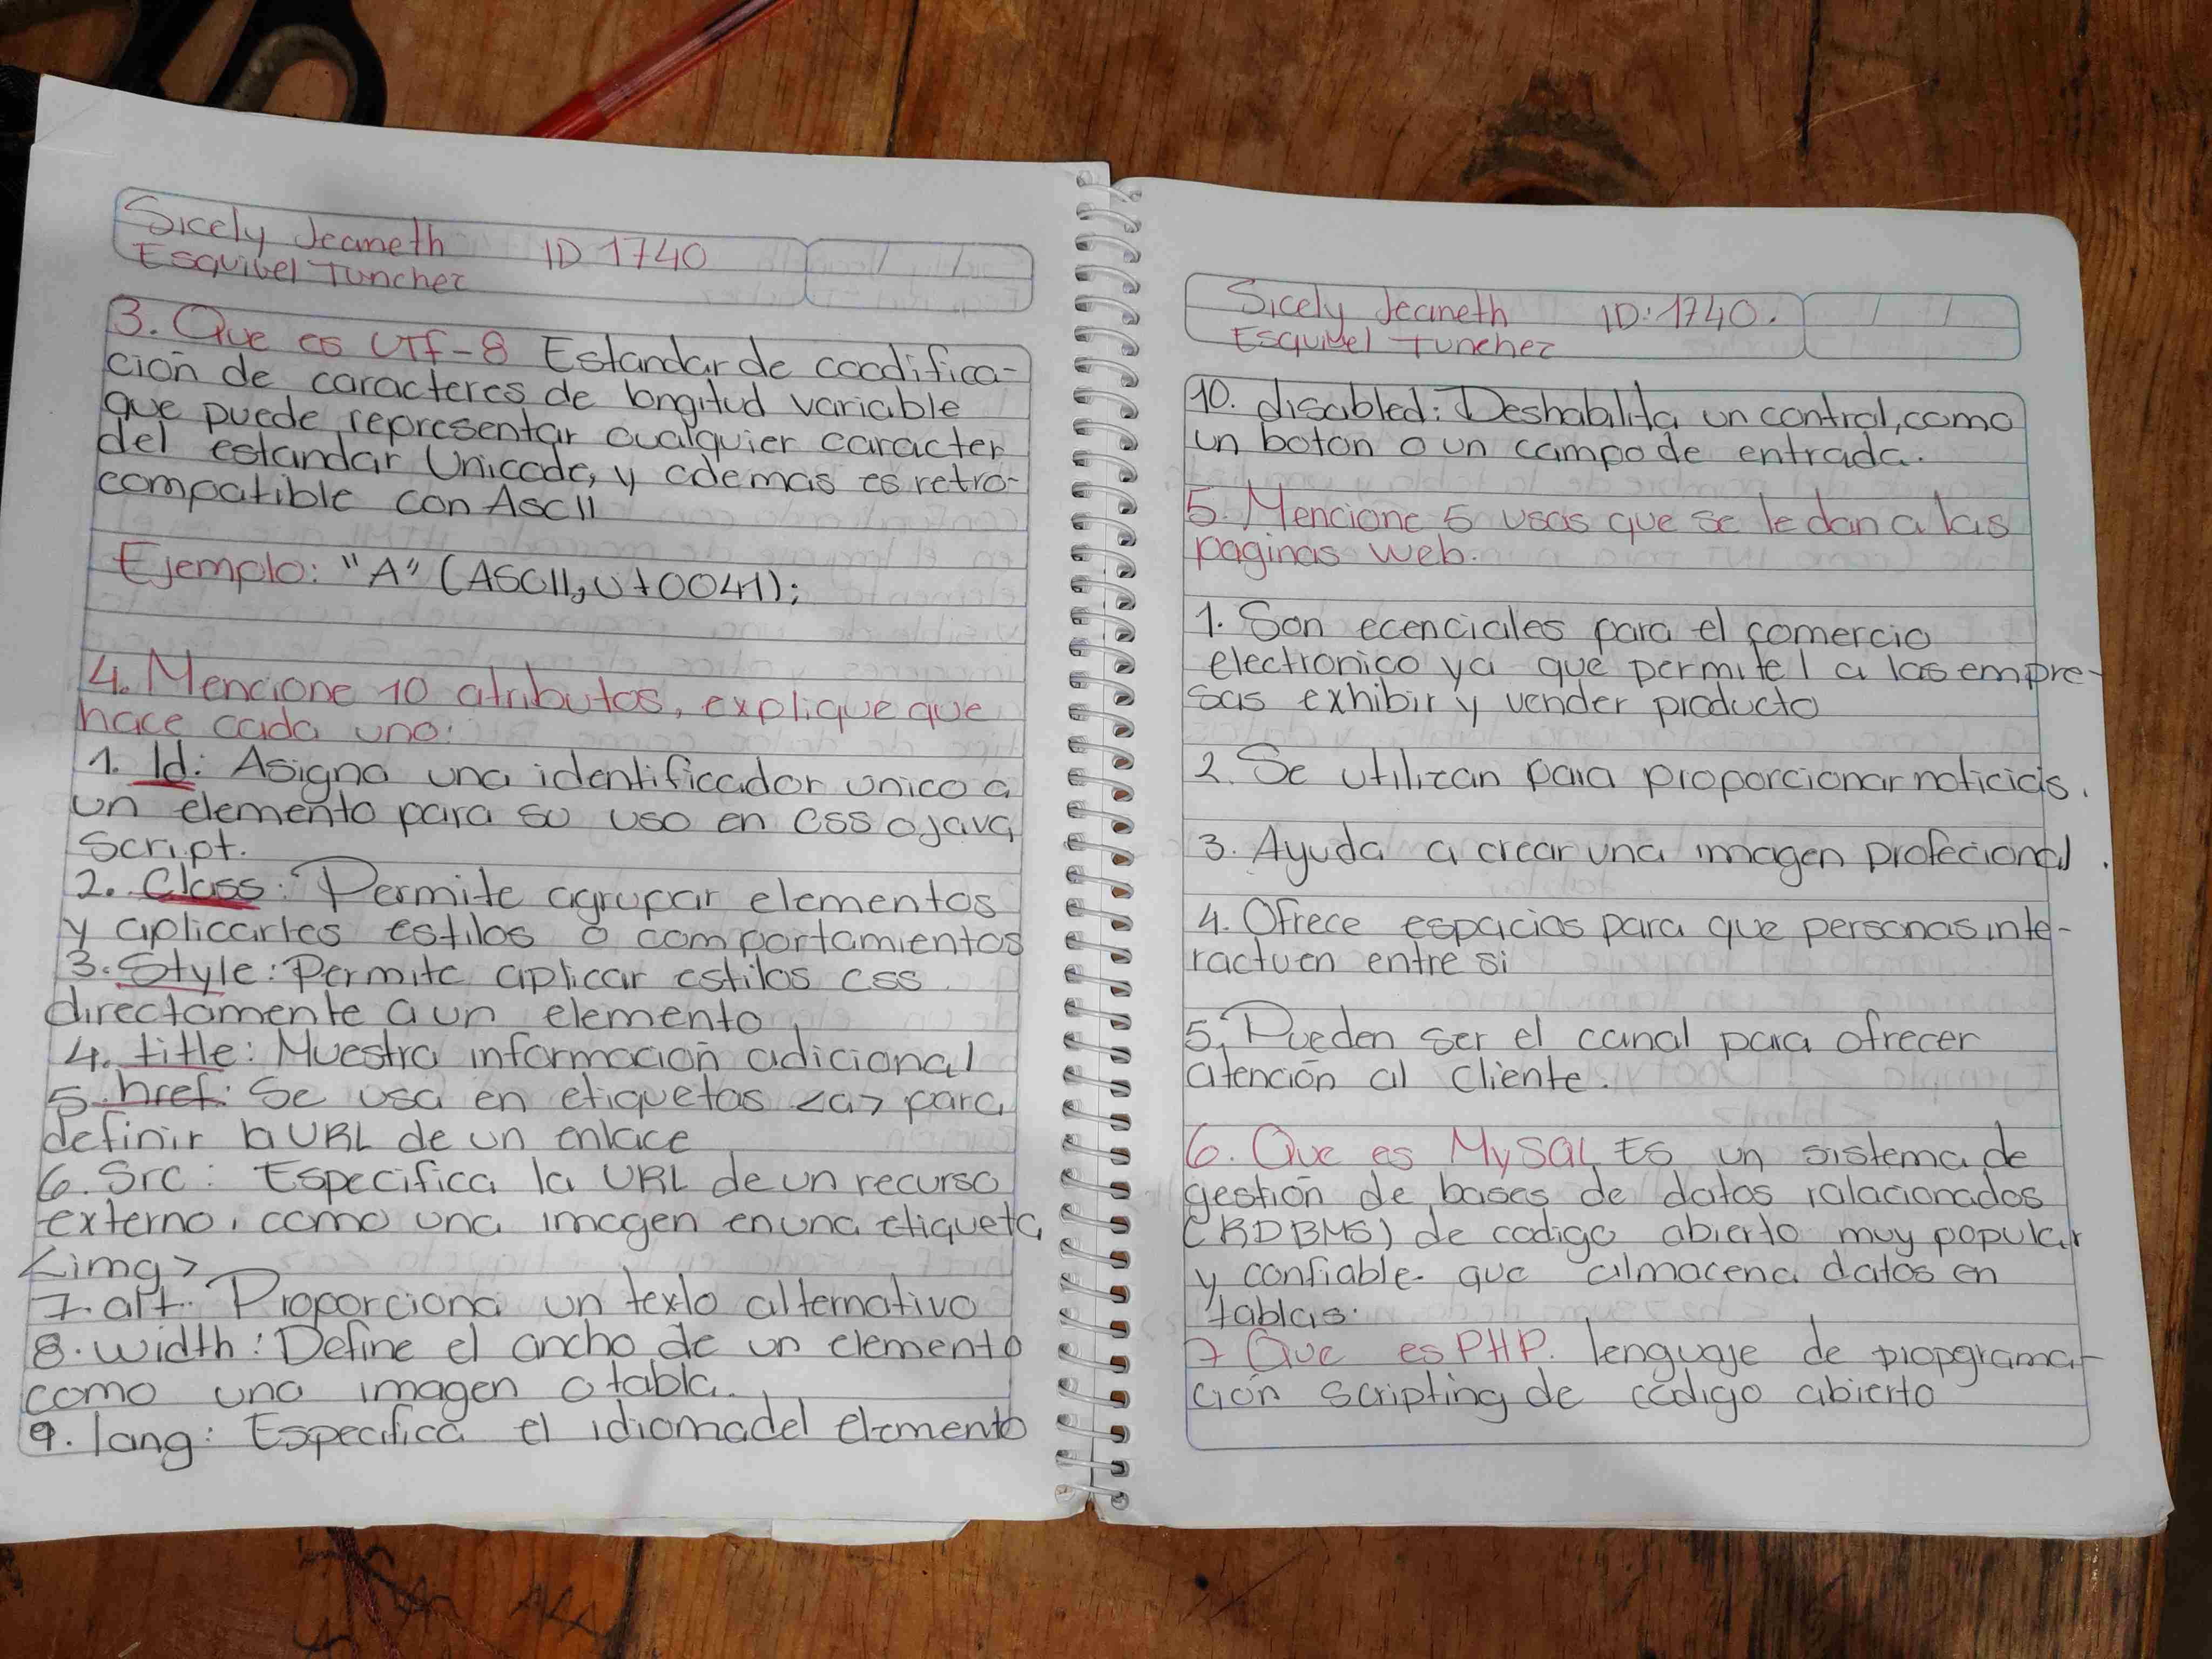 Sicely Jeaneth ID 1740
Esquivel Tuncher
3. Que es UTf-8 Estandar de coodifica-
ción de caracteres de longitud variable
que puede representar cualquier caracter
del estandar Unicode, y ademas es retro-
compatible con AscII
Ejemplo: "A" (ASCII, U+0041);
4. Mencione 10 atributos, explique que
hace cada uno:
1. Id: Asigna una identificador unico a
un elemento para su uso en Css o java
Script.
2. Class: Permite agrupar elementos
y aplicarles estilos o comportamientos
3. Style: Permite aplicar estilos css
directamente a un elemento
4. title: Muestra información adicional
5. href: Se usa en etiquetas <a> para
definir la URL de un enlace
6. Src: Especifica la URL de un recurso
externo, como una imagen en una etiqueta
<img>
7. alt. Proporciona un texto alternativo
8. width: Define el ancho de un elemento
como una imagen o tabla.
9. lang: Especifica el idioma del elemento
Sicely Jeaneth ID: 1740.
Esquivel Tuncher
10. disabled: Deshabilita un control, como
un boton o un campo de entrada.
5. Mencione 5 usos que se le dan a las
paginas web.
1. Son ecenciales para el comercio
electronico ya que permite l a las empre-
sas exhibir y vender producto
2. Se utilizan para proporcionar noticias.
3. Ayuda a crear una imagen profecional.
4. Ofrece espacios para que personas inte-
ractuen entre si
5. Pueden ser el canal para ofrecer
atención al cliente.
6. Que es MySQL Es un sistema de
gestión de bases de datos ralacionados
(RDBMS) de codigo abierto muy popular
y confiable. que almacena datos en
tablas.
7 Que es PHP. lenguaje de propgrama-
ción scripting de código abierto